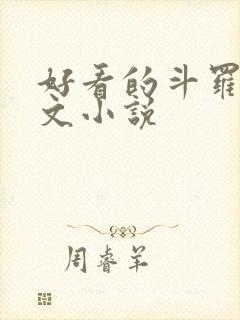 好看的斗罗
文小说
周睿羊